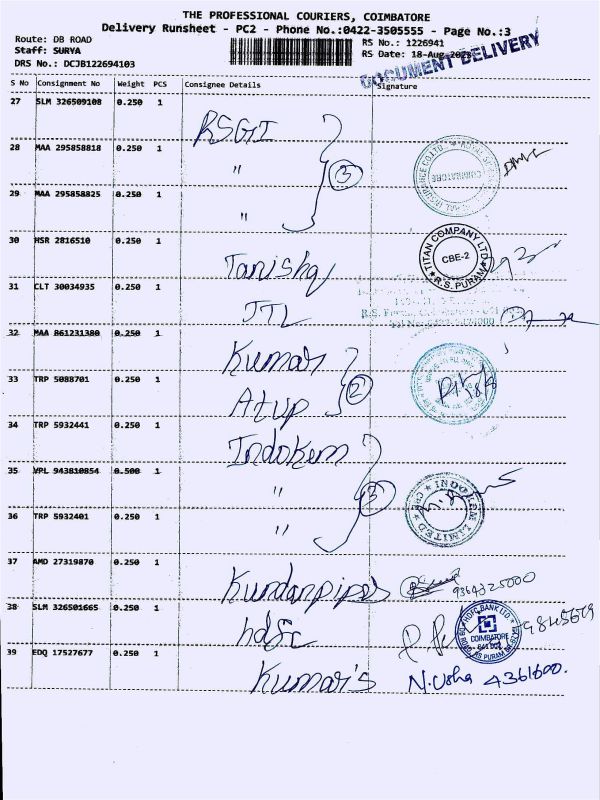 THE PROFESSIONAL COURIERS, COIMBATORE
Delivery Runsheet - PC2 - Phone No.:0422-3505555 - Page No.:3
Route: DB ROAD
RS No.: 1226941
Staff: SURYA
RS Date: 18-Aug-2023
DRS No.: DCJB122694103
DOCUMENT DELIVERY
S No Consignment No Weight PCS Consignee Details Signature
27 SLM 326509108 0.250 1 RSGI
28 MAA 295858818 0.250 1 " 3
29 MAA 295858825 0.250 1 "
30 HSR 2816510 0.250 1 Tanishq
TITAN COMPANY LTD CBE-2 R.S. PURAM
31 CLT 30034935 0.250 1 JTL
32 MAA 861231380 0.250 1 Kumar
33 TRP 5088701 0.250 1 Atup 2
34 TRP 5932441 0.250 1 Indokem
35 VPL 943810854 0.500 1 " 3
INDOKEM LIMITED CBE
36 TRP 5932401 0.250 1 "
37 AMD 27319870 0.250 1 Kundanpipes
9364225000
38 SLM 326501665 0.250 1 hdfc
HDFC BANK LTD COIMBATORE R.S. PURAM
39 EDQ 17527677 0.250 1 Kumar's N. Usha 4361600.